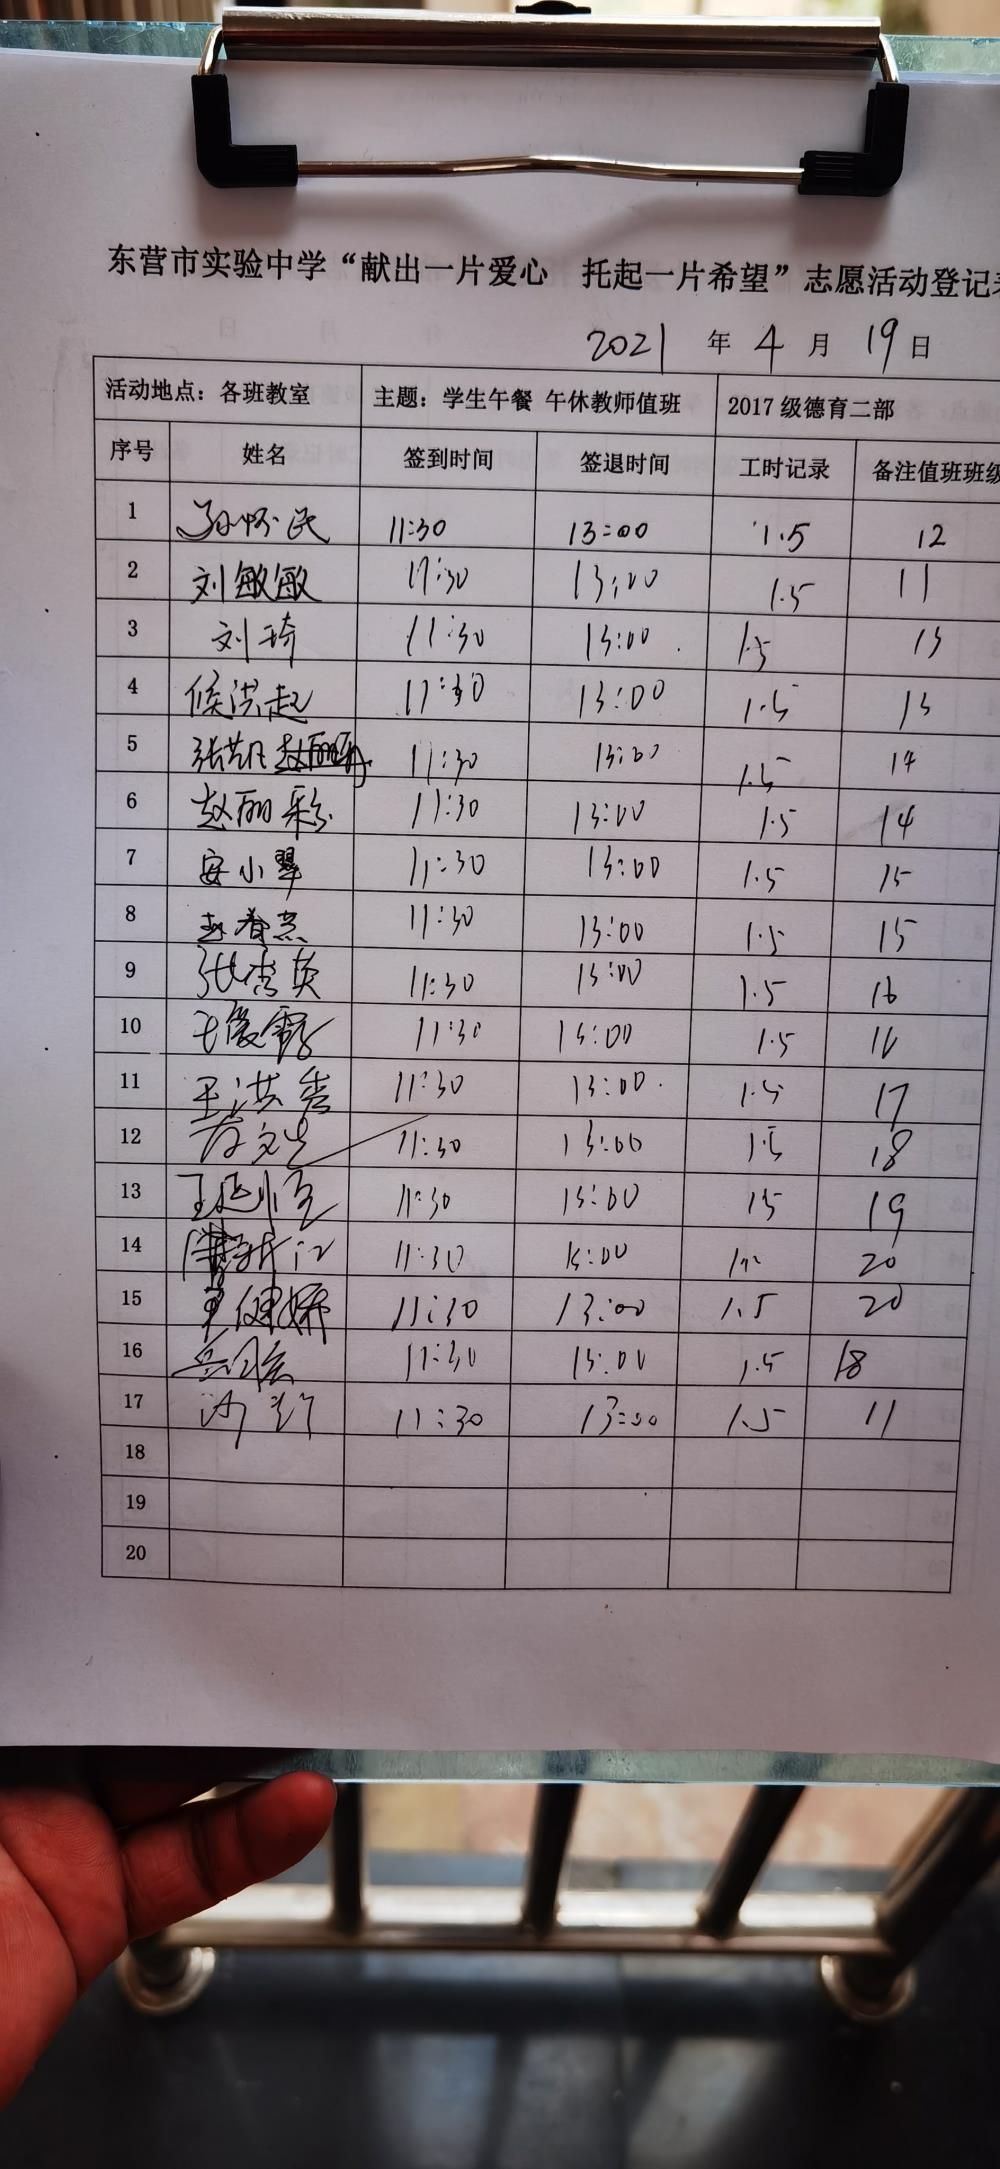 东营市实验中学“献出一片爱心 托起一片希望”志愿活动登记表
2021 年 4 月 19 日
活动地点：各班教室 主题：学生午餐 午休教师值班 2017 级德育二部
序号 姓名 签到时间 签退时间 工时记录 备注值班班级
1 孙怀民 11:30 13:00 1.5 12
2 刘敏敏 11:30 13:00 1.5 11
3 刘琦 11:30 13:00 1.5 13
4 候洪起 11:30 13:00 1.5 13
5 11:30 13:00 1.5 14
6 赵丽彩 11:30 13:00 1.5 14
7 安小翠 11:30 13:00 1.5 15
8 11:30 13:00 1.5 15
9 张秀英 11:30 13:00 1.5 16
10 王爱霞 11:30 13:00 1.5 16
11 王洪秀 11:30 13:00 1.5 17
12 11:30 13:00 1.5 18
13 11:30 13:00 1.5 19
14 11:30 13:00 20
15 11:30 13:00 1.5 20
16 11:30 13:00 1.5 18
17 11:30 13:00 1.5 11
18
19
20